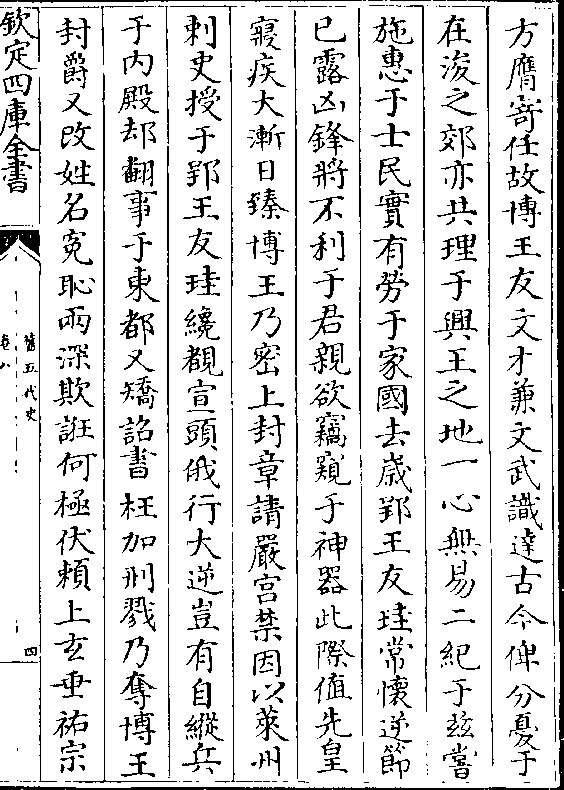 方膺寄任故博王友文才兼文武識達古今俾分憂于
在浚之郊亦共理于興王之地一心無易二紀于玆嘗
施惠于士民實有勞于家國去歲郢王友珪常懷逆節
已露凶鋒將不利于君親欲竊窺于神器此際值先皇
寢疾大漸日臻博王乃密上封章請嚴宮禁因以萊州
刺史授于郢王友珪纔覩宣頭俄行大逆豈有自縱兵
于内殿却翻事于東都又矯詔書枉加刑戮乃奪博王
封爵又改姓名寃恥兩深欺誑何極伏賴上玄垂祐宗
欽定四庫全書
舊五代史
卷八
四